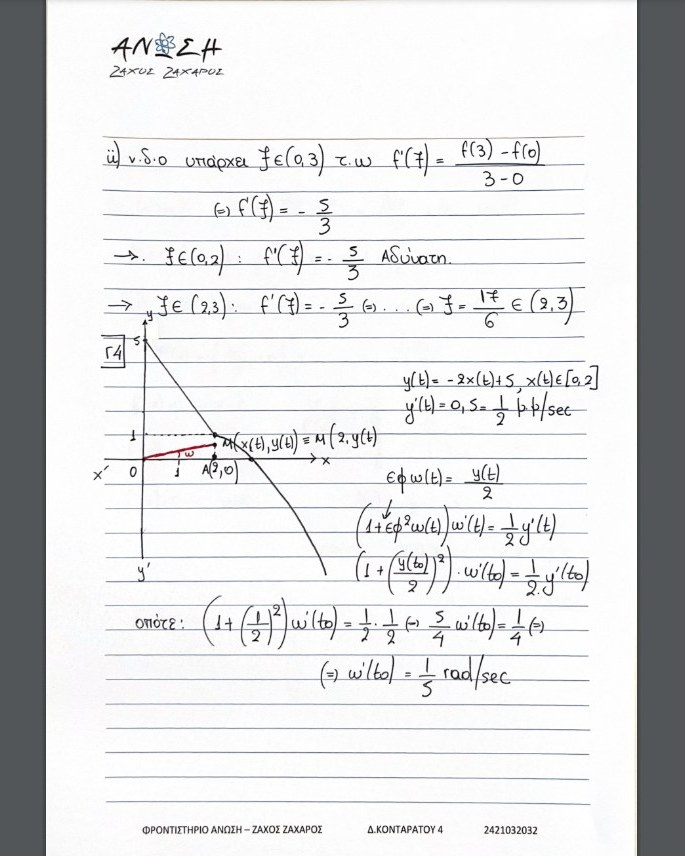 ΑΝΩΣΗ
ΖΑΧΟΣ ΖΑΧΑΡΟΣ
ii) ν.δ.ο υπάρχει ξ∈(0,3) τ.ω f'(ξ) = f(3) - f(0) / 3-0
(=) f'(ξ) = - 5/3
→. ξ∈(0,2) : f'(ξ) = - 5/3 Αδύνατη.
→ ξ∈(2,3): f'(ξ) = - 5/3 (=) ... (=) ξ = 17/6 ∈ (2,3)
Γ4
y
5
y(t) = -2x(t)+5, x(t)∈[0,2]
y'(t) = 0,5 = 1/2 μ.μ/sec
1
M(x(t),y(t)) ≡ M(2,y(t)
ω
x' 0 1 A(2,0) x
εφω(t) = y(t)/2
(1+εφ²ω(t))ω'(t) = 1/2 y'(t)
y'
(1+(y(to)/2)²)·ω'(to) = 1/2·y'(to)
οπότε: (1+(1/2)²)ω'(to) = 1/2·1/2 (=) 5/4 ω'(to) = 1/4 (=)
(=) ω'(to) = 1/5 rad/sec
ΦΡΟΝΤΙΣΤΗΡΙΟ ΑΝΩΣΗ – ΖΑΧΟΣ ΖΑΧΑΡΟΣ Δ.ΚΟΝΤΑΡΑΤΟΥ 4 2421032032